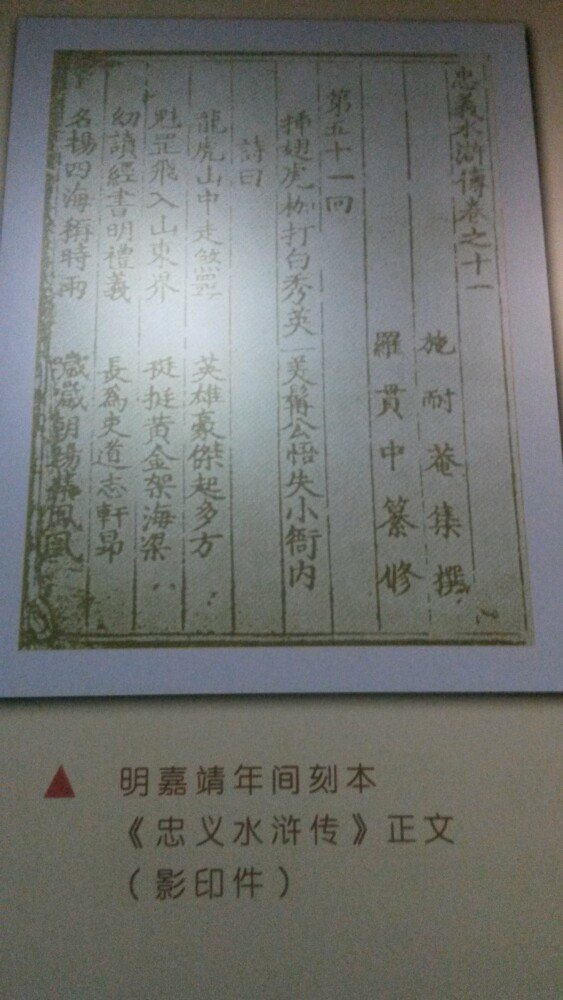 忠義水滸傳卷之十一
施耐菴集撰
羅貫中纂修
第五十一回
插翅虎枷打白秀英 美髯公悞失小衙内
詩曰
龍虎山中走煞罡 英雄豪傑起多方
魁罡飛入山東界 挺挺黃金架海梁
幼讀經書明禮義 長為吏道志軒昂
名揚四海稱時雨 歲歲朝陽集鳳凰
明嘉靖年间刻本
《忠义水浒传》正文
（影印件）